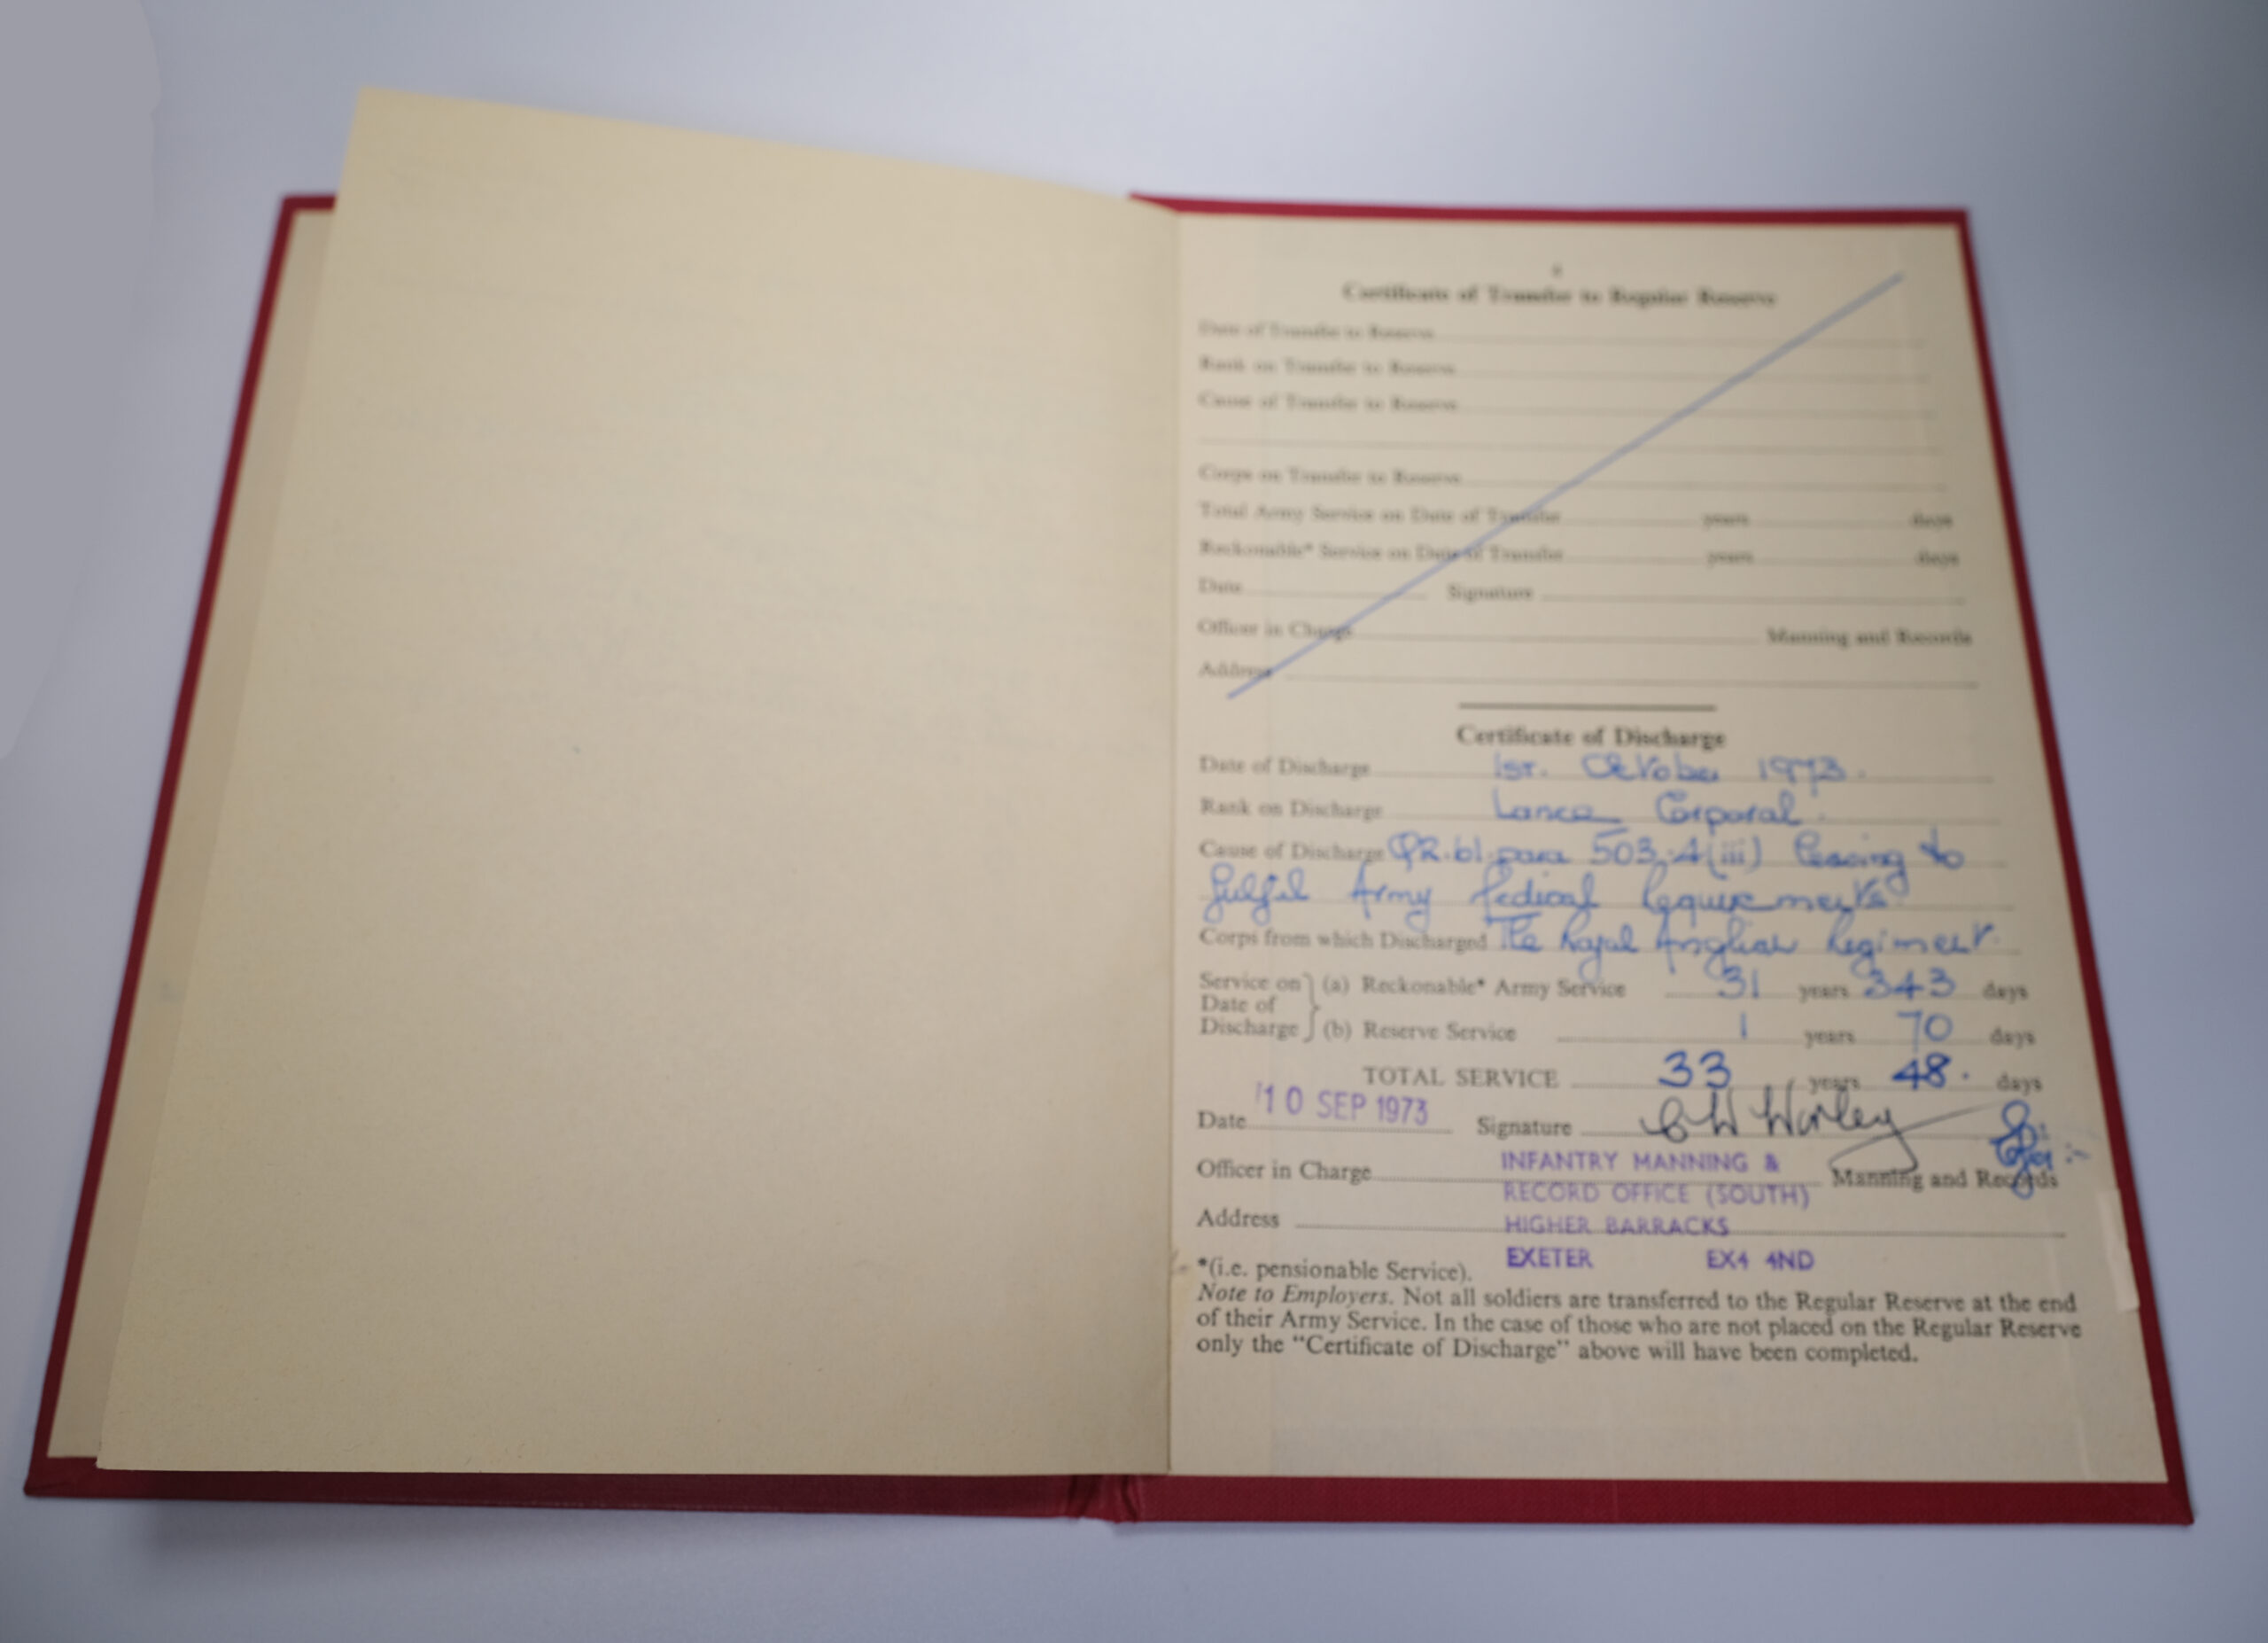 Certificate of Transfer to Regular Reserve
Date of Transfer to Reserve
Rank on Transfer to Reserve
Cause of Transfer to Reserve
Corps on Transfer to Reserve
Total Army Service on Date of Transfer years days
Reckonable* Service on Date of Transfer years days
Date Signature
Officer in Charge Manning and Records
Address
Certificate of Discharge
Date of Discharge 1st. October 1973.
Rank on Discharge Lance Corporal.
Cause of Discharge QR.61.para 503.4(iii) Ceasing to
fulfil Army Medical Requirements.
Corps from which Discharged The Royal Anglian Regiment.
Service on (a) Reckonable* Army Service 31 years 343 days
Date of
Discharge (b) Reserve Service 1 years 70 days
TOTAL SERVICE 33 years 48. days
Date 10 SEP 1973 Signature C W Worley
Officer in Charge INFANTRY MANNING & Manning and Records
RECORD OFFICE (SOUTH)
Address HIGHER BARRACKS
EXETER EX4 4ND
*(i.e. pensionable Service).
Note to Employers. Not all soldiers are transferred to the Regular Reserve at the end
of their Army Service. In the case of those who are not placed on the Regular Reserve
only the "Certificate of Discharge" above will have been completed.